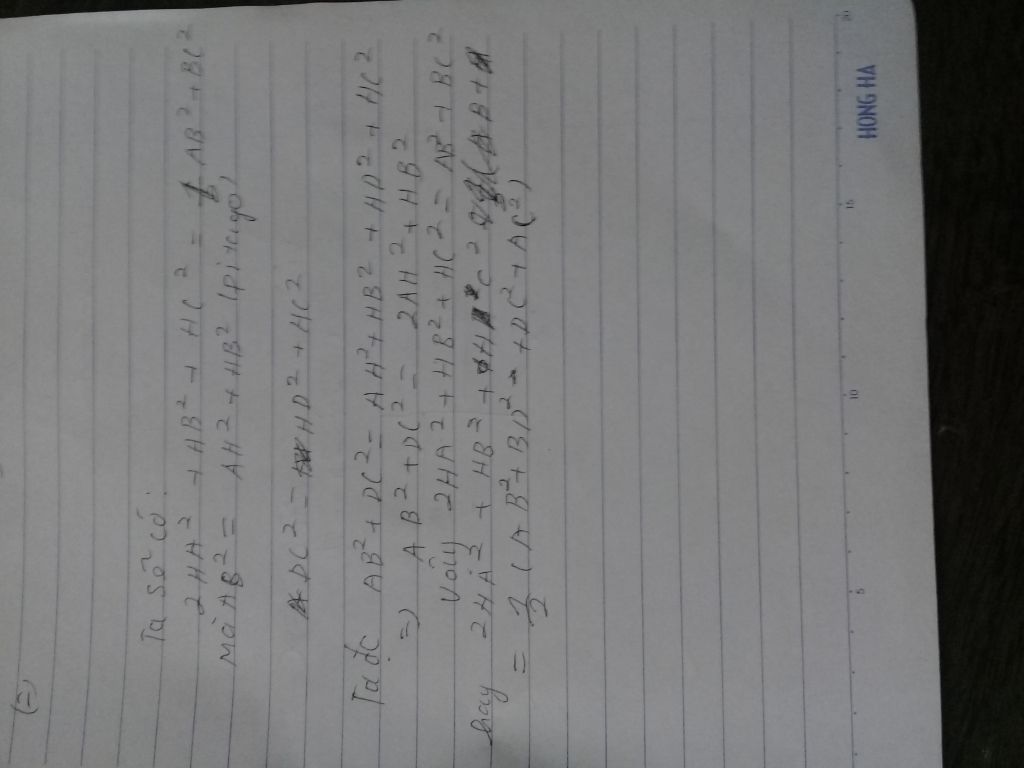 (=)
Ta sẽ có:
2HA² + HB² + HC² = AB² + BC²
mà AB² = AH² + HB² (pi tago)
DC² = HD² + HC²
Ta đc AB² + DC² = AH² + HB² + HD² + HC²
=) AB² + DC² = 2AH² + HB²
Vây 2HA² + HB² + HC² = AB² + BC²
hay 2HA² + HB² + C²
= 1/2 (AB² + BD² + DC² + AC²)
5 10 15 20
HONG HA